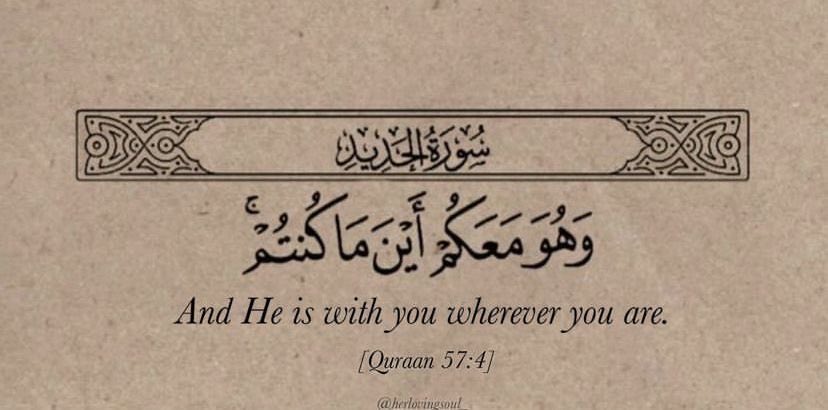 سُورَةُ الحَدِيدِ
وَهُوَ مَعَكُمْ أَيْنَ مَا كُنتُمْ ۚ
And He is with you wherever you are.
[Quraan 57:4]
@herlovingsoul_